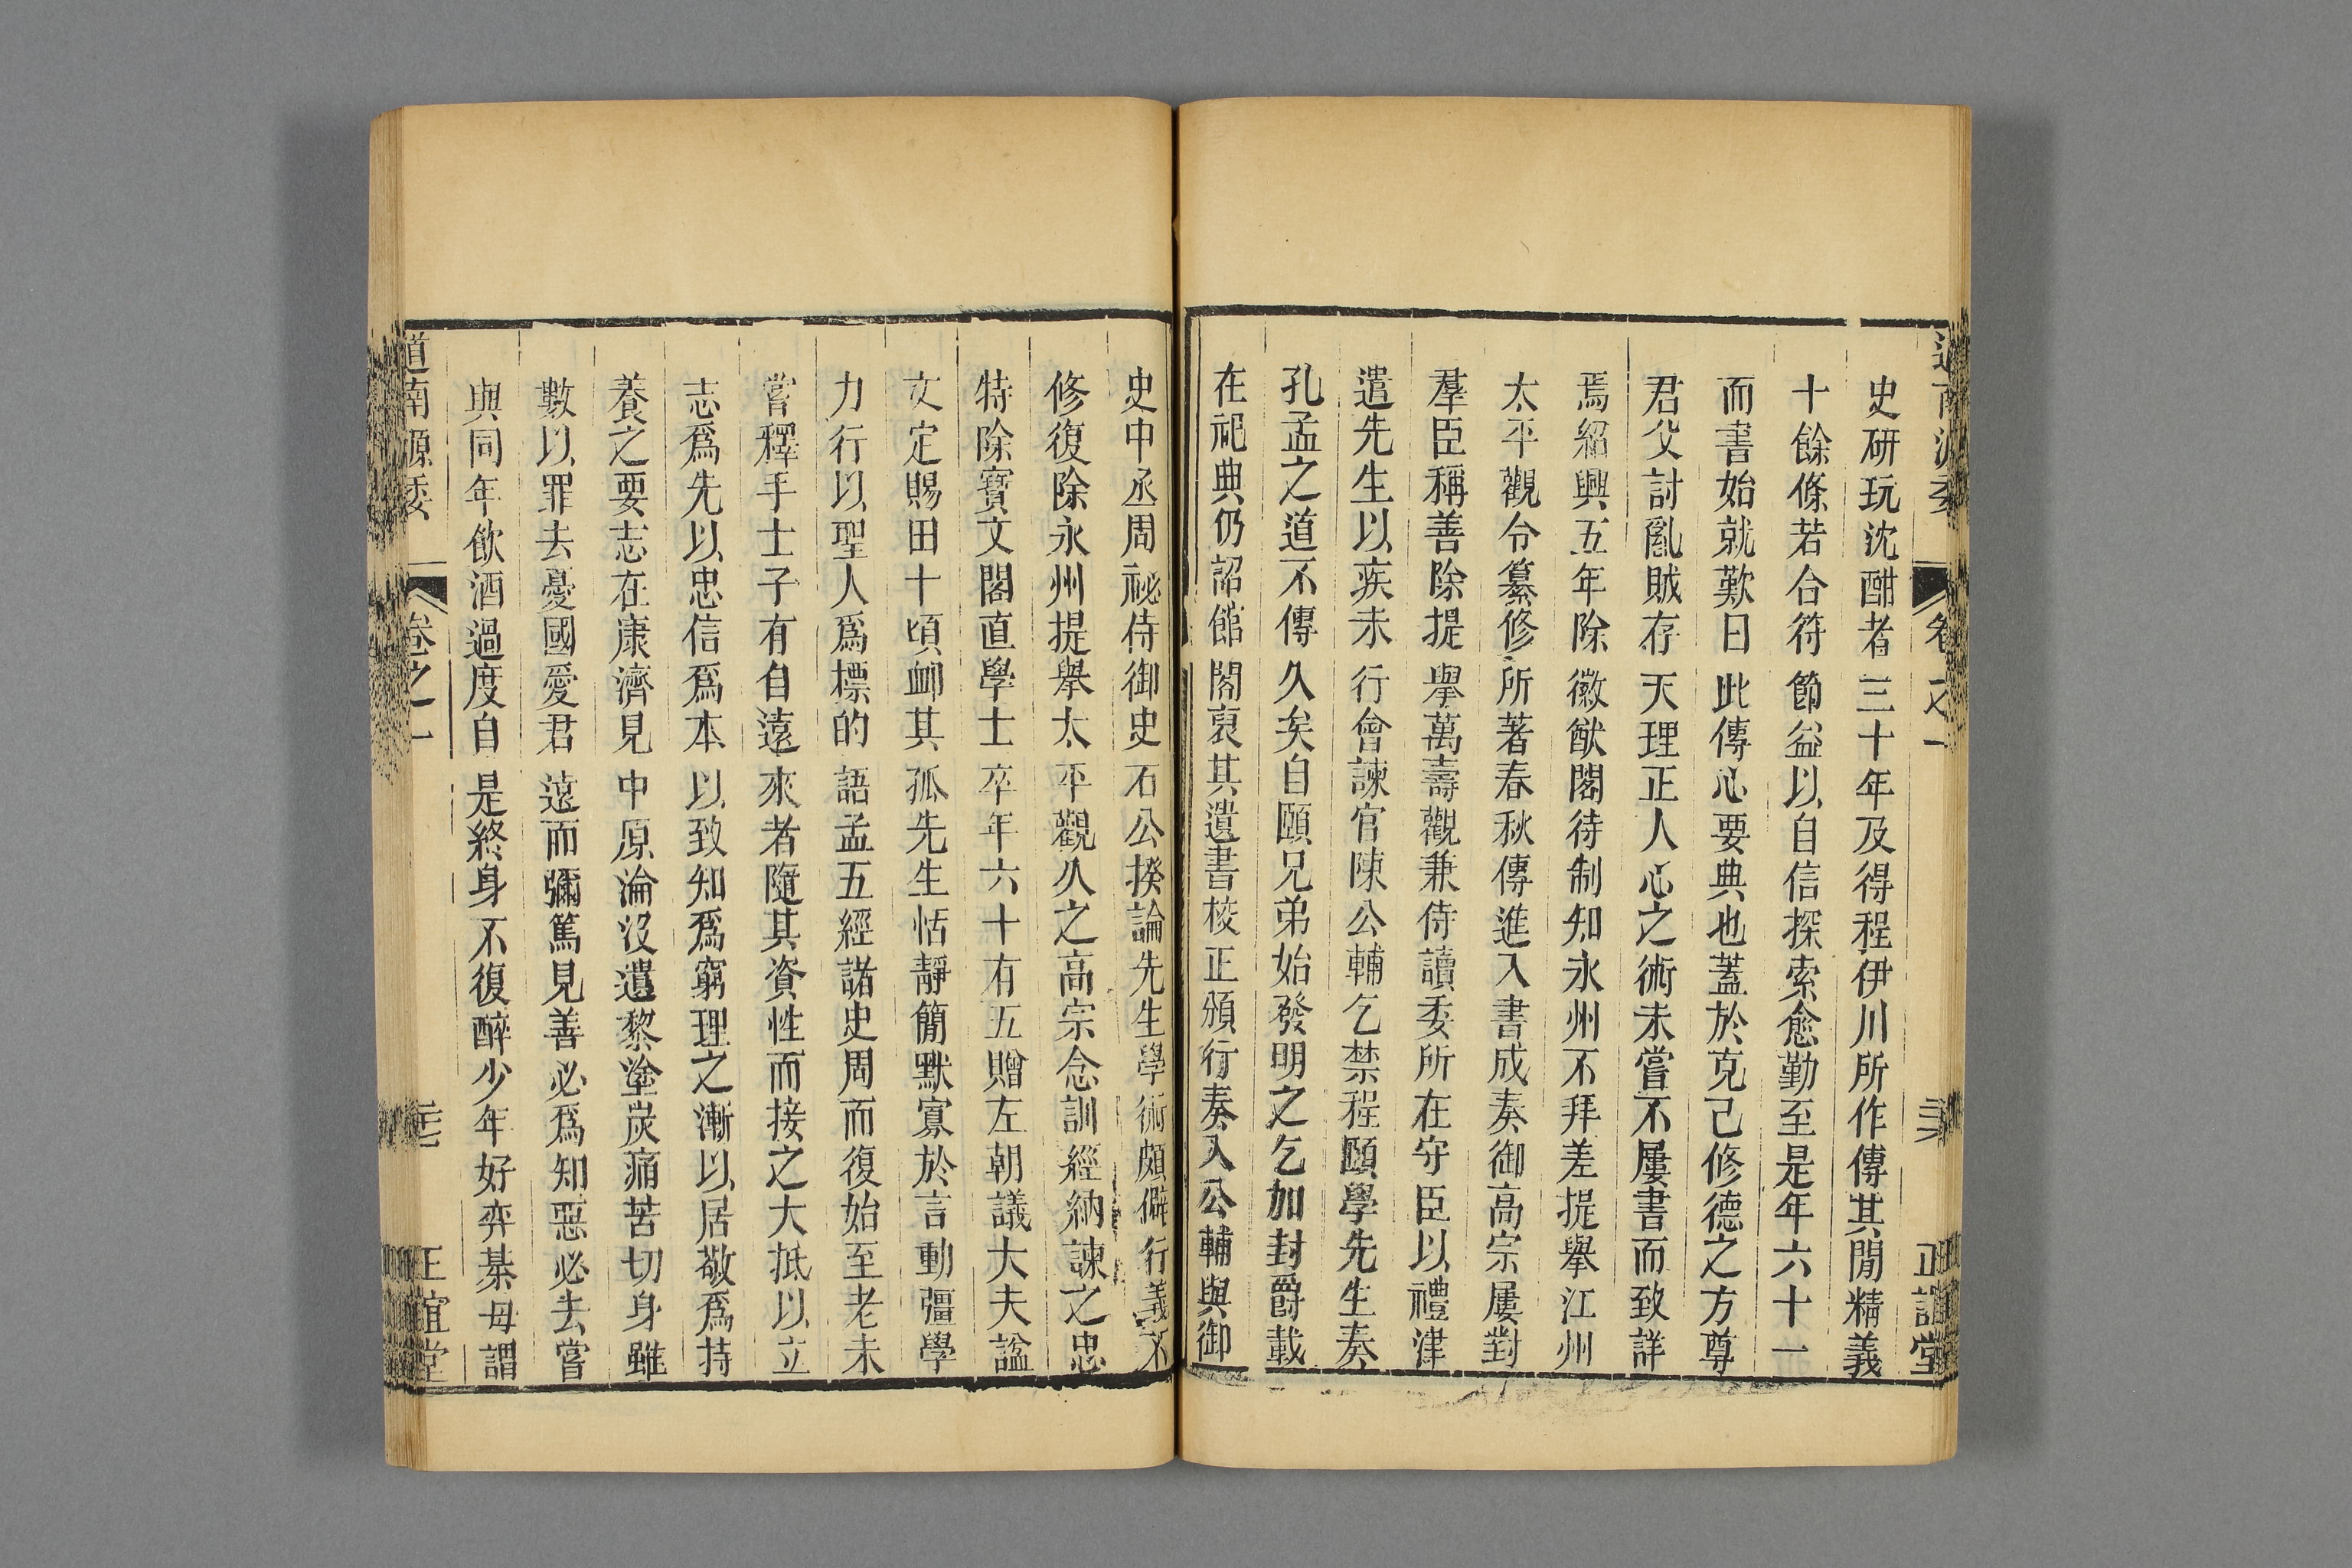 道南源委 卷之一 正誼堂
史研玩沈酣者三十年及得程伊川所作傳其閒精義
十餘條若合符節益以自信探索愈勤至是年六十一
而書始就歎曰此傳心要典也蓋於克己修德之方尊
君父討亂賊存天理正人心之術未嘗不屢書而致詳
焉紹興五年除徽猷閣待制知永州不拜差提舉江州
太平觀令纂修所著春秋傳進入書成奏御高宗屢對
羣臣稱善除提舉萬壽觀兼侍讀委所在守臣以禮津
遣先生以疾未行會諫官陳公輔乞禁程頤學先生奏
孔孟之道不傳久矣自頤兄弟始發明之乞加封爵載
在祀典仍詔館閣裒其遺書校正頒行奏入公輔與御
史中丞周祕侍御史石公揆論先生學術頗僻行義不
修復除永州提舉太平觀久之高宗念訓經納諫之忠
特除寶文閣直學士卒年六十有五贈左朝議大夫諡
文定賜田十頃卹其孤先生恬靜簡默寡於言動彊學
力行以聖人爲標的語孟五經諸史周而復始至老未
嘗釋手士子有自遠來者隨其資性而接之大抵以立
志爲先以忠信爲本以致知爲窮理之漸以居敬爲持
養之要志在康濟見中原淪沒遺黎塗炭痛苦切身雖
數以罪去憂國愛君遠而彌篤見善必爲知惡必去嘗
與同年飲酒過度自是終身不復醉少年好弈棊母謂
道南源委 卷之一 正誼堂